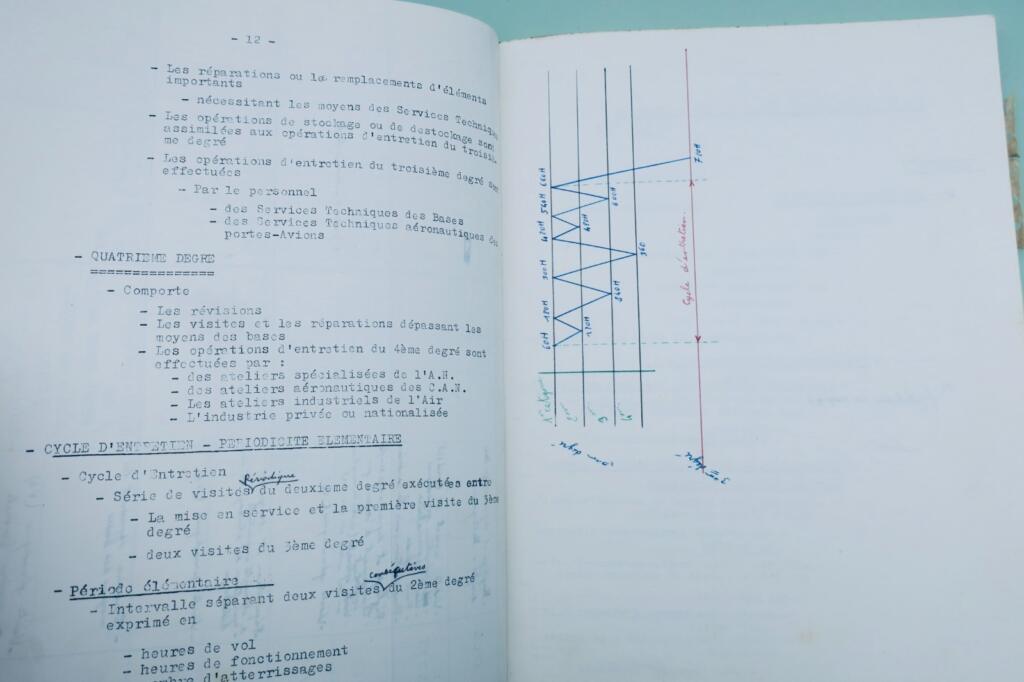 - 12 -
- Les réparations ou le remplacements d'éléments
importants
- nécessitant les moyens des Services
- Les opérations de stockage ou de destockage sont
assimilées aux opérations d'entretien du
me degré
- Les opérations d'entretien du troisième degré
effectuées
- Par le personnel
- des Services Techniques des Bases
- des Services Techniques aéronautiques
portes-Avions
- QUATRIEME DEGRE
===============
- Comporte
- Les révisions
- Les visites et les réparations dépassant les
moyens des bases
- Les opérations d'entretien du 4ème degré sont
effectuées par :
- des ateliers spécialisés de l'A.N.
- des ateliers aéronautiques des C.A.N.
- Les ateliers industriels de l'Air
- L'industrie privée ou nationalisée
- CYCLE D'ENTRETIEN - PERIODICITE ELEMENTAIRE
- Cycle d'Entretien
- Série de visites périodique du deuxieme degré exécutées entre
- La mise en service et la première visite du 3ème
degré
- deux visites du 3ème degré
- Période élémentaire
- Intervalle séparant deux visites consécutives du 2ème degré
exprimé en
- heures de vol
- heures de fonctionnement
d'atterrissages
60H 120H 300H 420H 540H 660H
120H 240H 360 480H 600H 720H
Cycle d'entretien
degré